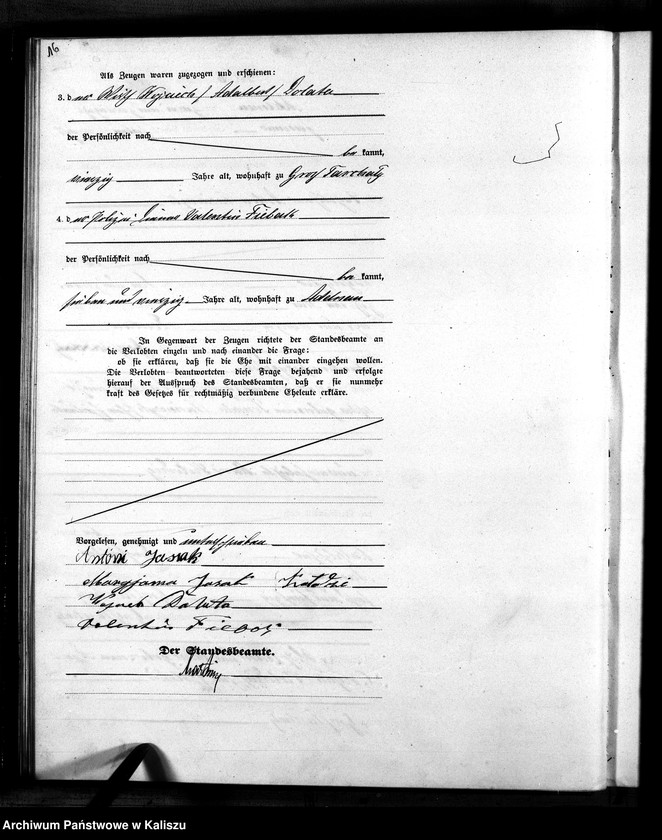 16
Als Zeugen waren zugezogen und erschienen:
3. der Wojciech / Adalbert / Dolata
der Persönlichkeit nach
be kannt,
vierzig Jahre alt, wohnhaft zu Groß
4. der Valentin Fiebak
der Persönlichkeit nach
be kannt,
sieben und vierzig Jahre alt, wohnhaft zu Adelnau
In Gegenwart der Zeugen richtete der Standesbeamte an
die Verlobten einzeln und nach einander die Frage:
ob sie erklären, daß sie die Ehe mit einander eingehen wollen.
Die Verlobten beantworteten diese Frage bejahend und erfolgte
hierauf der Ausspruch des Standesbeamten, daß er sie nunmehr
kraft des Gesetzes für rechtmäßig verbundene Eheleute erkläre.
Vorgelesen, genehmigt und unterschrieben
Antoni Jasiak
Maryjanna
Dolata
Valentin
Der Standesbeamte.
Archiwum Państwowe w Kaliszu